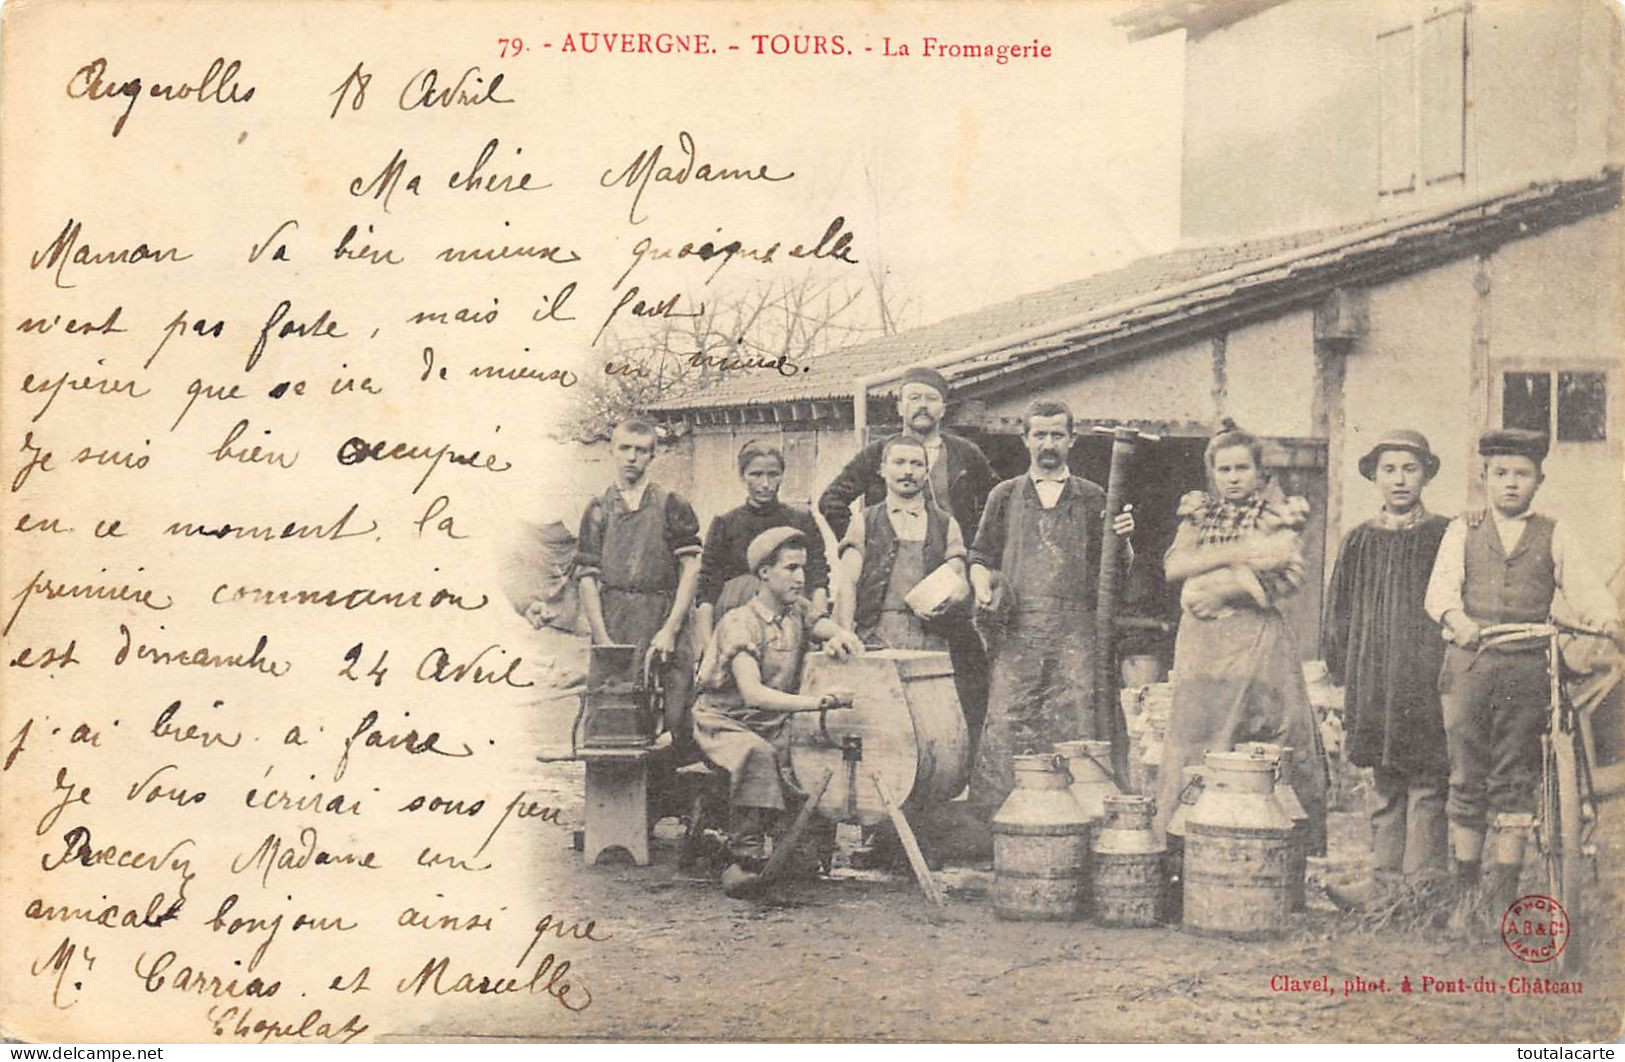 79. - AUVERGNE. - TOURS. - La Fromagerie
Augerolles 18 Avril
Ma chère Madame
Maman va bien mieux quoique elle
n'est pas forte, mais il faut
espérer que se ira de mieux en mieux.
Je suis bien occupée
en ce moment. la
première communion
est dimanche 24 Avril
j'ai bien a faire.
Je vous écrirai sous peu
Recevez Madame un
amical bonjour ainsi que
Mr. Carrias et Marcelle
Chapelat
PHOT.
A.B & Cie
NANCY
Clavel, phot. à Pont-du-Château
www.delcampe.net
toutalacarte